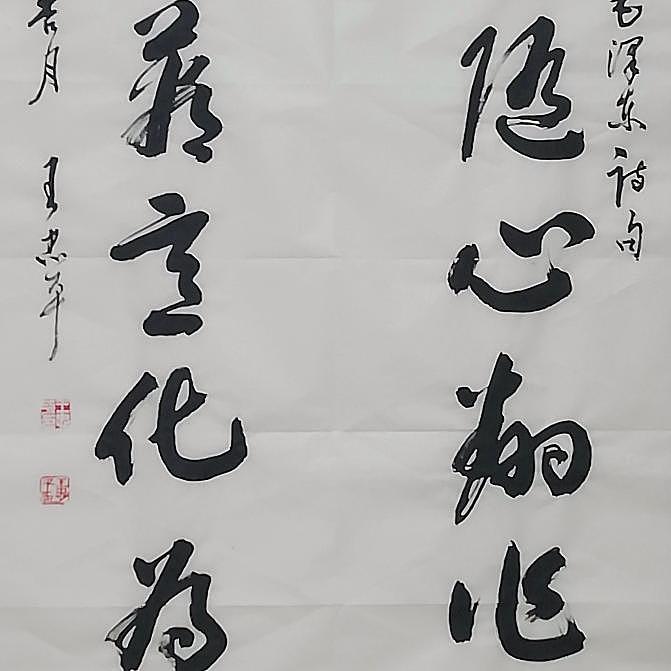 毛泽东诗句
随心翻作
着意化为
吉月 王忠平